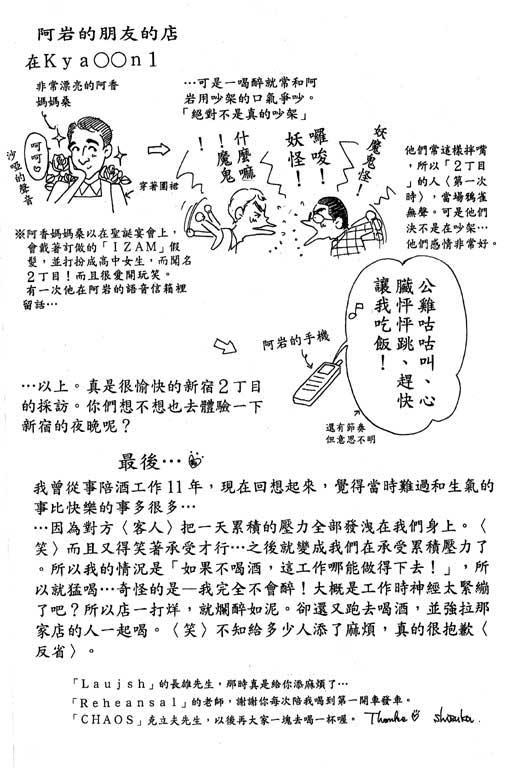 阿岩的朋友的店
在Kya○○n1
非常漂亮的阿香
媽媽桑
呵呵
沙啞的聲音
穿著圍裙
…可是一喝醉就常和阿
岩用吵架的口氣爭吵。
「絕對不是真的吵架」
什麼嘛
！魔鬼
！
囉唆！
妖怪！
妖魔鬼怪！
他們常這樣拌嘴
，所以「2丁目」
的人〈第一次
時〉，當場鴉雀
無聲。可是他們
決不是在吵架…
他們感情非常好。
※阿香媽媽桑以在聖誕宴會上，
會戴著訂做的「IZAM」假
髮，並打扮成高中女生，而聞名
2丁目！而且很愛開玩笑。
有一次他在阿岩的語音信箱裡
留話…
公雞咕咕叫、心
臟怦怦跳、趕快
讓我吃飯！
阿岩的手機
還有節奏
但意思不明
…以上。真是很愉快的新宿2丁目
的採訪。你們想不想也去體驗一下
新宿的夜晚呢？
最後…
我曾從事陪酒工作11年，現在回想起來，覺得當時難過和生氣的
事比快樂的事多很多…
…因為對方〈客人〉把一天累積的壓力全部發洩在我們身上。〈
笑〉而且又得笑著承受才行…之後就變成我們在承受累積壓力了
。所以我的情況是「如果不喝酒，這工作哪能做得下去！」，所
以就猛喝…奇怪的是—我完全不會醉！大概是工作時神經太緊繃
了吧？所以店一打烊，就爛醉如泥。卻還又跑去喝酒，並強拉那
家店的人一起喝。〈笑〉不知給多少人添了麻煩，真的很抱歉〈
反省〉。
「Laujsh」的長雄先生，那時真是給你添麻煩了…
「Reheansal」的老師，謝謝你每次陪我喝到第一開車發車。
「CHAOS」克立夫先生，以後再大家一塊去喝一杯喔。 Thanks shizuka.